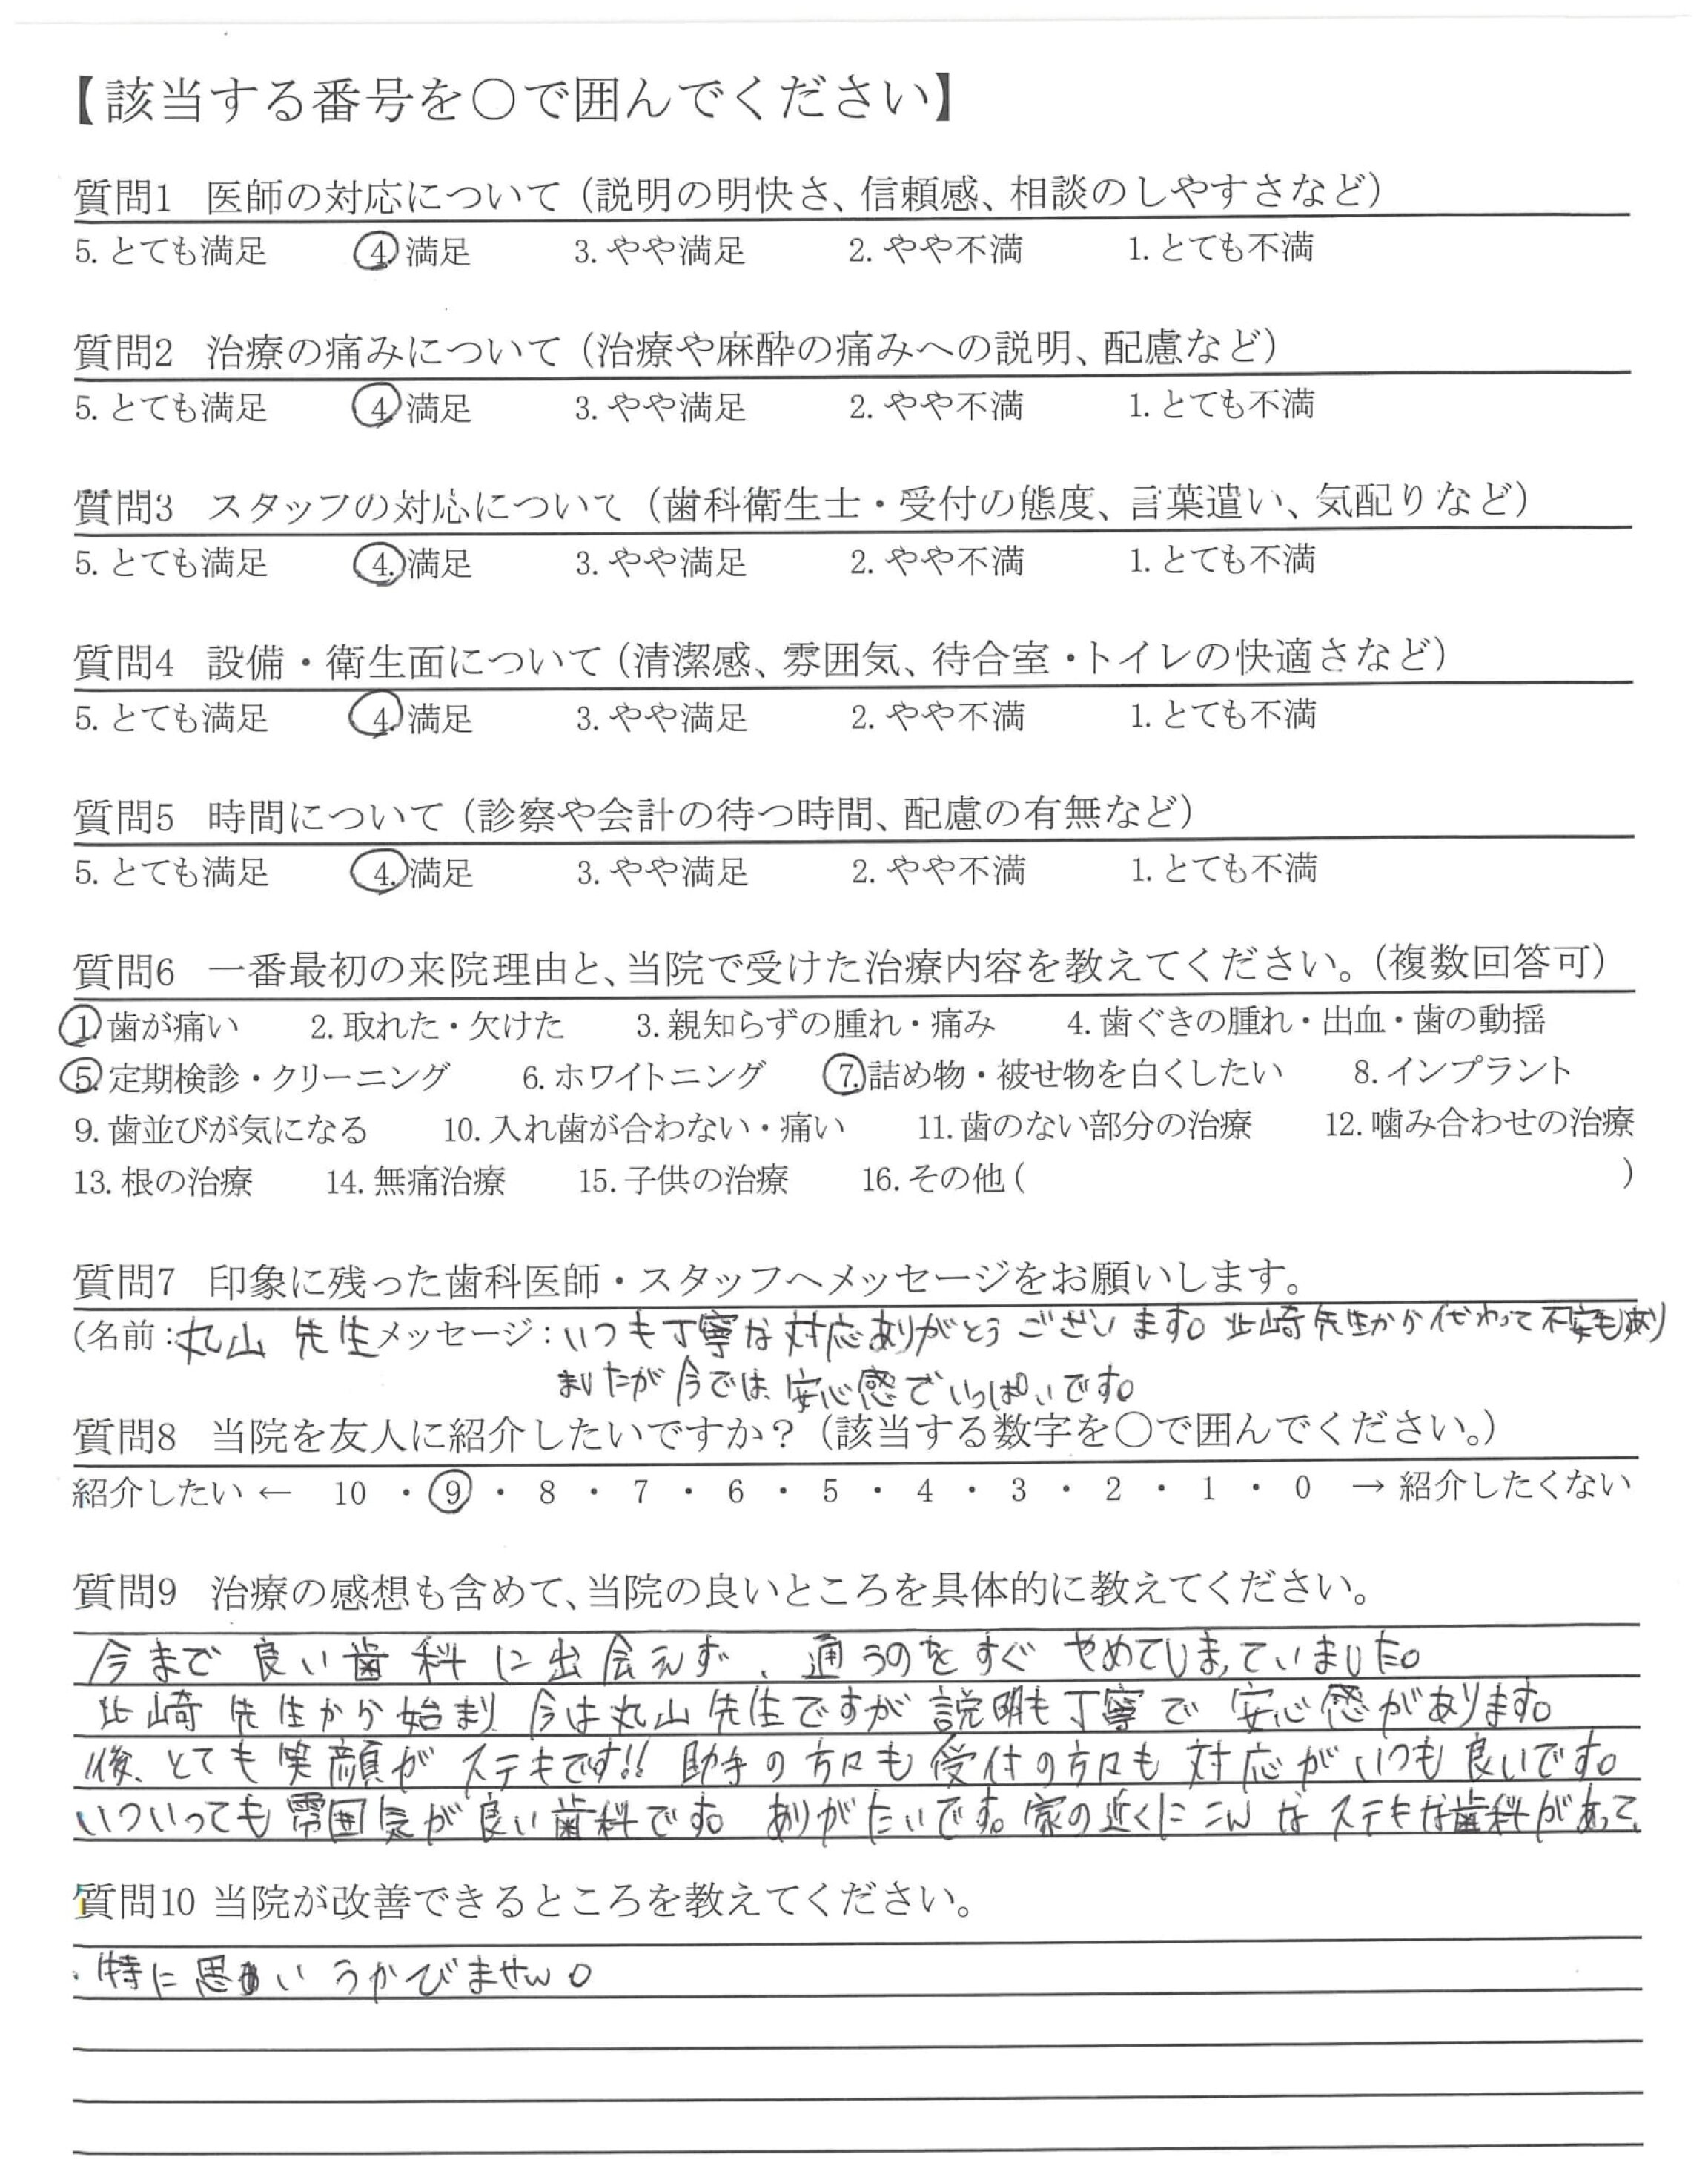 【該当する番号を○で囲んでください】
質問1 医師の対応について（説明の明快さ、信頼感、相談のしやすさなど）
5. とても満足 4. 満足 3. やや満足 2. やや不満 1. とても不満
質問2 治療の痛みについて（治療や麻酔の痛みへの説明、配慮など）
5. とても満足 4. 満足 3. やや満足 2. やや不満 1. とても不満
質問3 スタッフの対応について（歯科衛生士・受付の態度、言葉遣い、気配りなど）
5. とても満足 4. 満足 3. やや満足 2. やや不満 1. とても不満
質問4 設備・衛生面について（清潔感、雰囲気、待合室・トイレの快適さなど）
5. とても満足 4. 満足 3. やや満足 2. やや不満 1. とても不満
質問5 時間について（診察や会計の待つ時間、配慮の有無など）
5. とても満足 4. 満足 3. やや満足 2. やや不満 1. とても不満
質問6 一番最初の来院理由と、当院で受けた治療内容を教えてください。（複数回答可）
1. 歯が痛い 2. 取れた・欠けた 3. 親知らずの腫れ・痛み 4. 歯ぐきの腫れ・出血・歯の動揺
5. 定期検診・クリーニング 6. ホワイトニング 7. 詰め物・被せ物を白くしたい 8. インプラント
9. 歯並びが気になる 10. 入れ歯が合わない・痛い 11. 歯のない部分の治療 12. 噛み合わせの治療
13. 根の治療 14. 無痛治療 15. 子供の治療 16. その他（ ）
質問7 印象に残った歯科医師・スタッフへメッセージをお願いします。
（名前：丸山 先生 メッセージ：いつも丁寧な対応ありがとうございます。北崎先生から代わって不安もあり
ましたが今では、安心感でいっぱいです。
質問8 当院を友人に紹介したいですか？（該当する数字を○で囲んでください。）
紹介したい ← 10 ・ 9 ・ 8 ・ 7 ・ 6 ・ 5 ・ 4 ・ 3 ・ 2 ・ 1 ・ 0 → 紹介したくない
質問9 治療の感想も含めて、当院の良いところを具体的に教えてください。
今まで良い歯科に出会えず、通うのをすぐやめてしまっていました。
北崎先生から始まり、今は丸山先生ですが説明も丁寧で安心感があります。
後、とても笑顔がステキです!! 助手の方々も受付の方々も対応がいつも良いです。
いついっても雰囲気が良い歯科です。ありがたいです。家の近くにこんなステキな歯科があって、
質問10 当院が改善できるところを教えてください。
・特に思いうかびません。